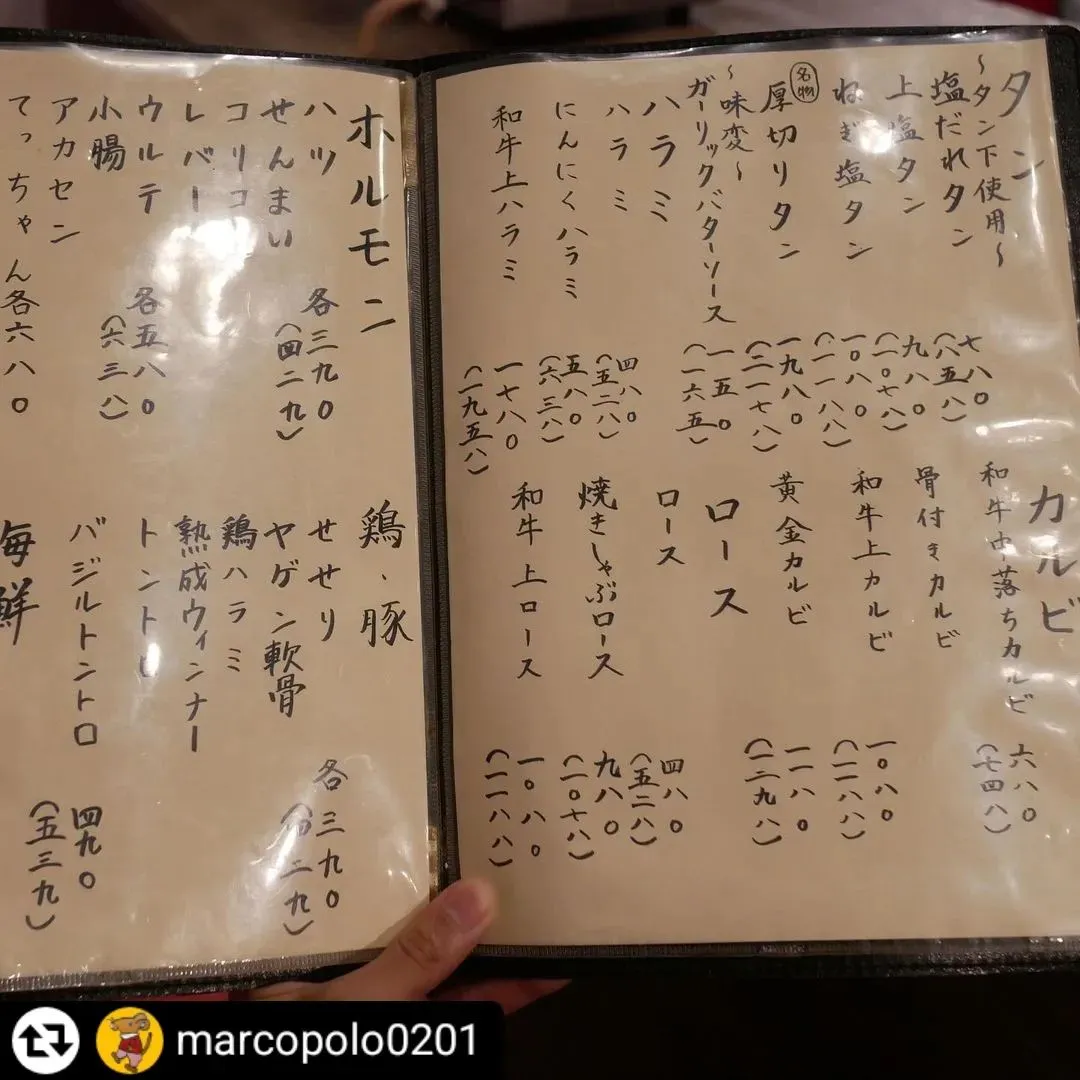 タン
〜タン下使用〜
塩だれタン 七八〇
(八五八)
上塩タン 九八〇
(一〇七八)
ねぎ塩タン 一〇八〇
(一一八八)
名物
厚切りタン 一九八〇
(二一七八)
〜味変〜
ガーリックバターソース 一五〇
(一六五)
ハラミ
ハラミ 四八〇
(五二八)
にんにくハラミ 五八〇
(六三八)
和牛上ハラミ 一七八〇
(一九五八)
カルビ
和牛中落ちカルビ 六八〇
(七四八)
骨付きカルビ
和牛上カルビ 一〇八〇
(一一八八)
黄金カルビ 一一八〇
(一二九八)
ロース
ロース 四八〇
(五二八)
焼きしゃぶロース 九八〇
(一〇七八)
和牛上ロース 一〇八〇
(一一八八)
ホルモン
ハツ
せんまい
コリコリ
レバー
各三九〇
(四二九)
ウルテ
小腸
各五八〇
(六三八)
アカセン
てっちゃん各六八〇
鶏、豚
せせり
ヤゲン軟骨
鶏ハラミ
熟成ウィンナー
トントロ
各三九〇
(四二九)
バジルトントロ 四九〇
(五三九)
海鮮
marcopolo0201